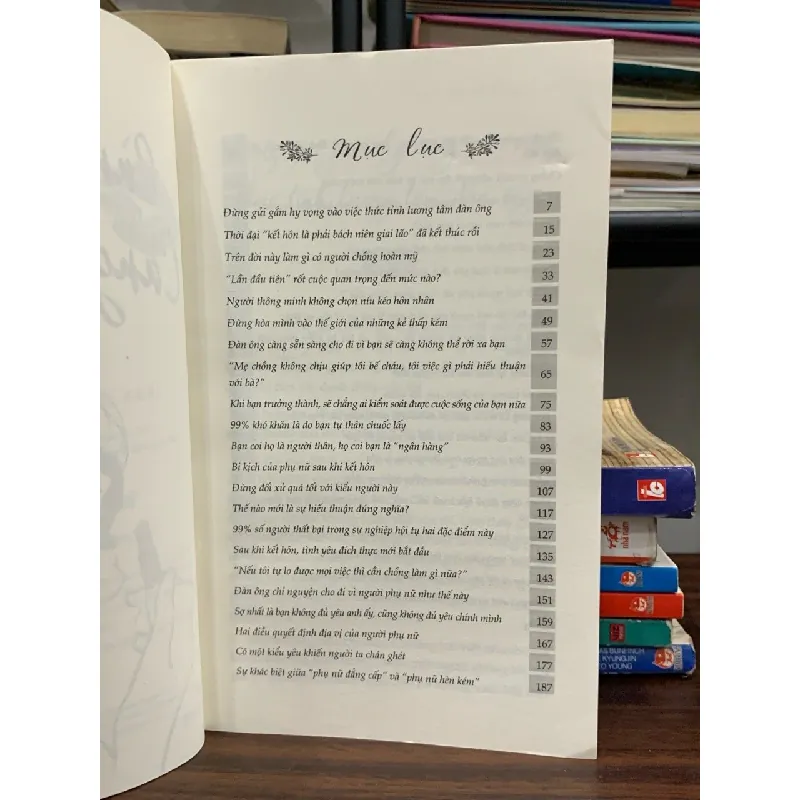 Mục lục
Đừng gửi gắm hy vọng vào việc thức tỉnh lương tâm đàn ông 7
Thời đại “kết hôn là phải bách niên giai lão” đã kết thúc rồi 15
Trên đời này làm gì có người chồng hoàn mỹ 23
“Lần đầu tiên” rốt cuộc quan trọng đến mức nào? 33
Người thông minh không chọn níu kéo hôn nhân 41
Đừng hòa mình vào thế giới của những kẻ thấp kém 49
Đàn ông càng sẵn sàng cho đi vì bạn sẽ càng không thể rời xa bạn 57
“Mẹ chồng không chịu giúp tôi bế cháu, tôi việc gì phải hiếu thuận
với bà?” 65
Khi bạn trưởng thành, sẽ chẳng ai kiểm soát được cuộc sống của bạn nữa 75
99% khó khăn là do bạn tự thân chuốc lấy 83
Bạn coi họ là người thân, họ coi bạn là “ngân hàng” 93
Bi kịch của phụ nữ sau khi kết hôn 99
Đừng đối xử quá tốt với kiểu người này 107
Thế nào mới là sự hiếu thuận đúng nghĩa? 117
99% số người thất bại trong sự nghiệp hội tụ hai đặc điểm này 127
Sau khi kết hôn, tình yêu đích thực mới bắt đầu 135
“Nếu tôi tự lo được mọi việc thì cần chồng làm gì nữa?” 143
Đàn ông chỉ nguyện cho đi vì người phụ nữ như thế này 151
Sợ nhất là bạn không đủ yêu anh ấy, cũng không đủ yêu chính mình 159
Hai điều quyết định địa vị của người phụ nữ 167
Có một kiểu yêu khiến người ta chán ghét 177
Sự khác biệt giữa “phụ nữ đẳng cấp” và “phụ nữ hèn kém” 187
nhã nam
KYUNGJIN
YOUNG